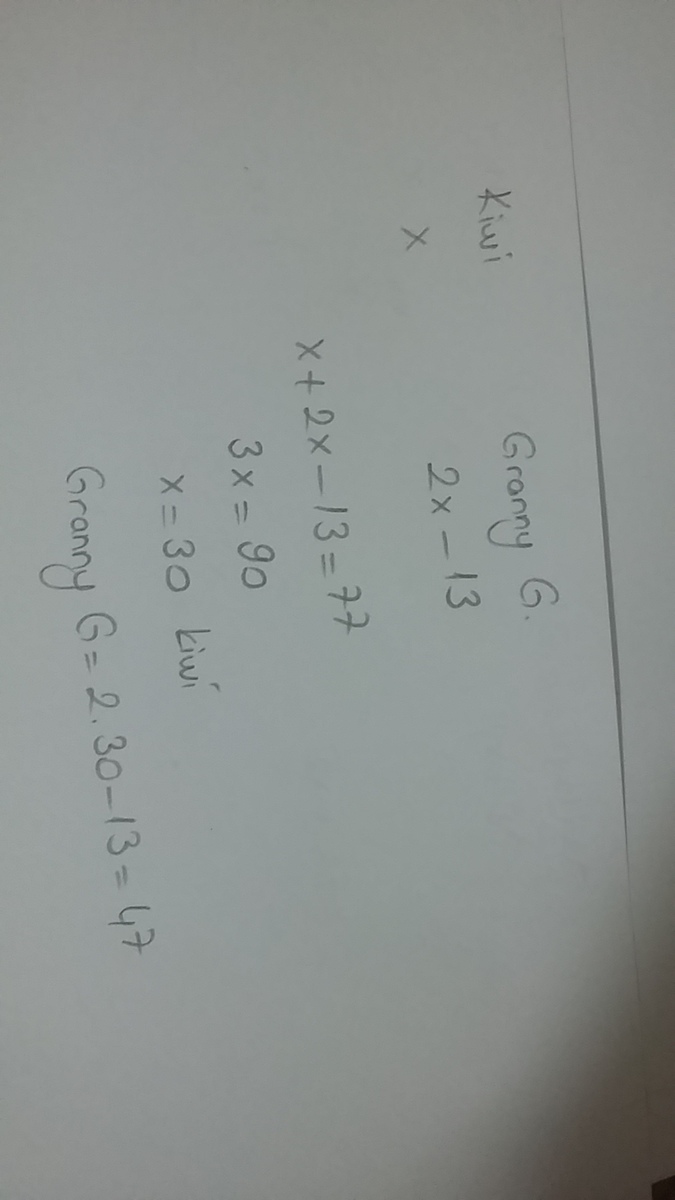 Kiwi Granny G.
x 2x - 13
x + 2x - 13 = 77
3x = 90
x = 30 kiwi
Granny G = 2.30 - 13 = 47